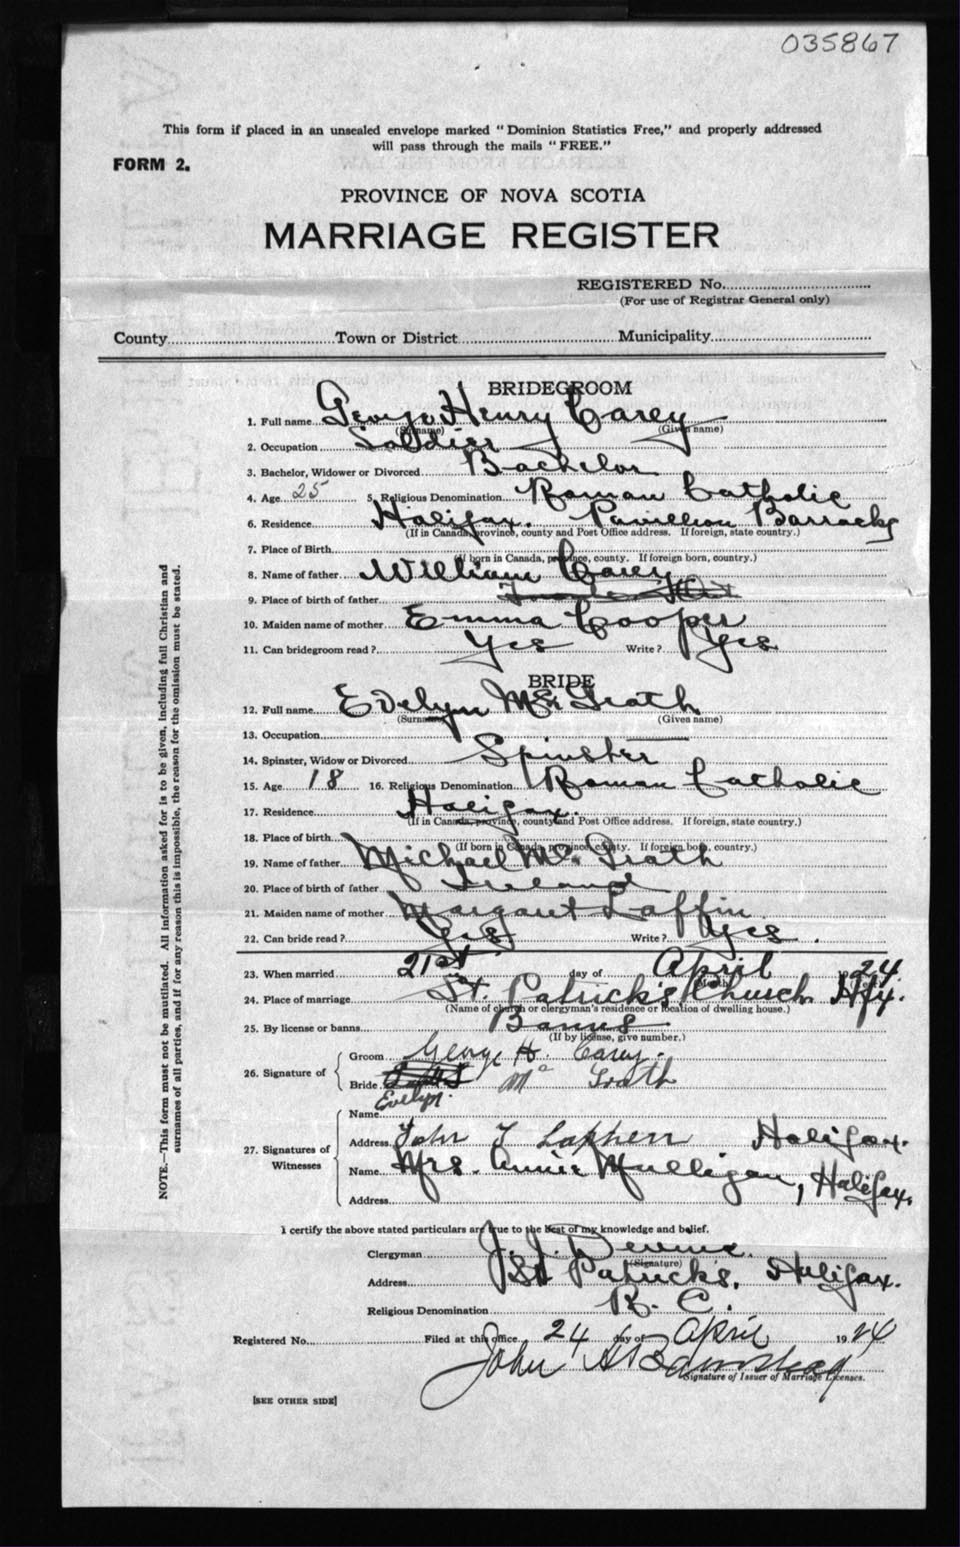 035867
This form if placed in an unsealed envelope marked "Dominion Statistics Free," and properly addressed
will pass through the mails "FREE."
FORM 2.
PROVINCE OF NOVA SCOTIA
MARRIAGE REGISTER
REGISTERED No.
(For use of Registrar General only)
County Town or District Municipality
BRIDEGROOM
1. Full name George Henry Carey
(Surname) (Given name)
2. Occupation Soldier
3. Bachelor, Widower or Divorced Bachelor
4. Age 25 5. Religious Denomination Roman Catholic
6. Residence Halifax. Pavillion Barracks
(If in Canada, province, county and Post Office address. If foreign, state country.)
7. Place of Birth
(If born in Canada, province, county. If foreign born, country.)
8. Name of father William Carey
9. Place of birth of father
10. Maiden name of mother Emma Cooper
11. Can bridegroom read? Yes Write? Yes
BRIDE
12. Full name Evelyn Mc Grath
(Surname) (Given name)
13. Occupation
14. Spinster, Widow or Divorced Spinster
15. Age 18 16. Religious Denomination Roman Catholic
17. Residence Halifax.
(If in Canada, province, county and Post Office address. If foreign, state country.)
18. Place of birth
(If born in Canada, province, county. If foreign born, country.)
19. Name of father Michael Mc Grath
20. Place of birth of father Ireland
21. Maiden name of mother Margaret Laffin
22. Can bride read? Yes Write? Yes.
23. When married 21st day of April 24
(Month)
24. Place of marriage St. Patrick's Church Hfx.
(Name of church or clergyman's residence or location of dwelling house.)
25. By license or banns Banns
(If by license, give number.)
26. Signature of
Groom George H. Carey.
Bride Mc Grath
Evelyn.
27. Signatures of Witnesses
Name
Address John T Laphen Halifax.
Name Mrs. Annie Mulligan, Halifax.
Address
I certify the above stated particulars are true to the best of my knowledge and belief.
Clergyman J. J. Devine.
(Signature)
Address St Patrick's, Halifax.
Religious Denomination R. C.
Registered No. Filed at this office 24 day of April 1924
John
Signature of Issuer of Marriage Licenses.
[SEE OTHER SIDE]
NOTE.—This form must not be mutilated. All information asked for is to be given, including full Christian and
surnames of all parties, and if for any reason this is impossible, the reason for the omission must be stated.